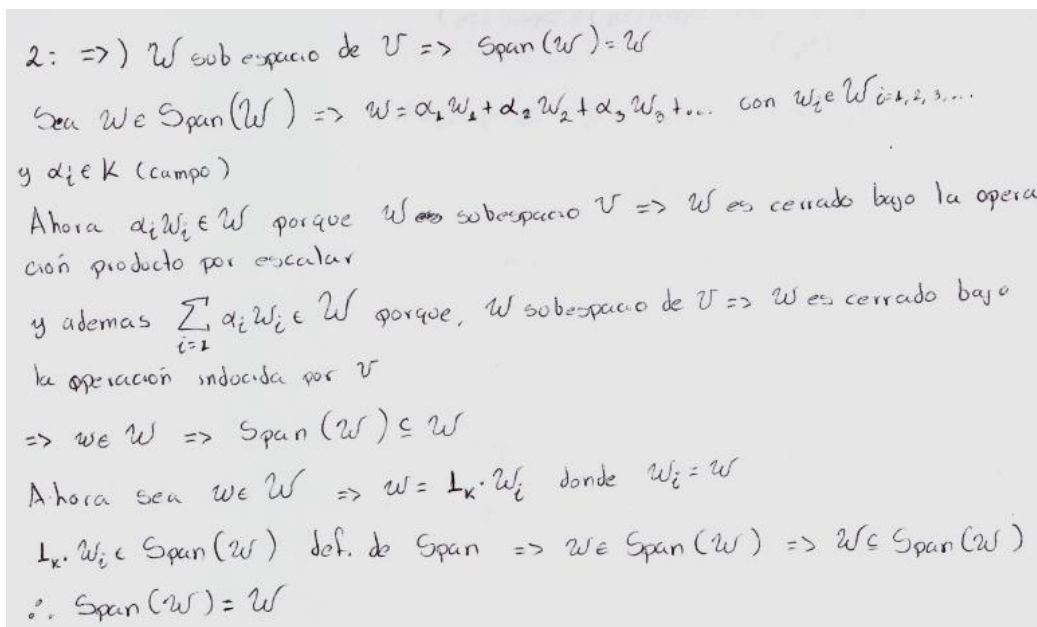 2: =>) W sub espacio de V => Span(W)=W
Sea w ∈ Span(W) => w = α₁w₁ + α₂w₂ + α₃w₃ + ... con wᵢ ∈ W i=1, 2, 3, ...
y αᵢ ∈ K (campo)
Ahora αᵢwᵢ ∈ W porque W es subespacio V => W es cerrado bajo la opera
ción producto por escalar
y ademas ∑ᵢ₌₁ αᵢwᵢ ∈ W porque, W subespacio de V => W es cerrado bajo
la operación inducida por V
=> w ∈ W => Span(W) ⊆ W
Ahora sea w ∈ W => w = 1ₖ·wᵢ donde wᵢ = w
1ₖ·wᵢ ∈ Span(W) def. de Span => w ∈ Span(W) => W ⊆ Span(W)
∴ Span(W) = W